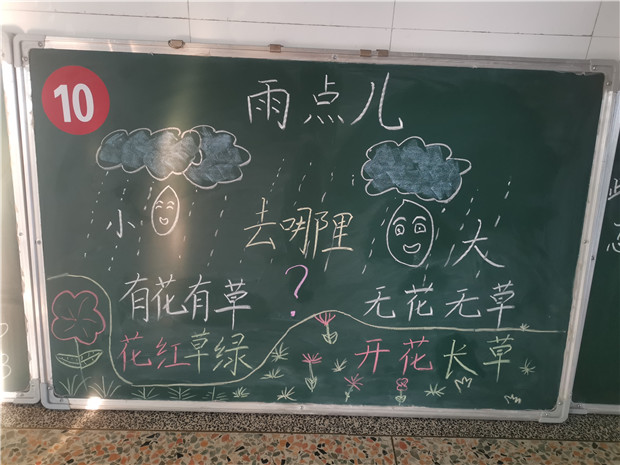 10
雨点儿
小 去哪里 大
有花有草 ? 无花无草
花红草绿 开花长草